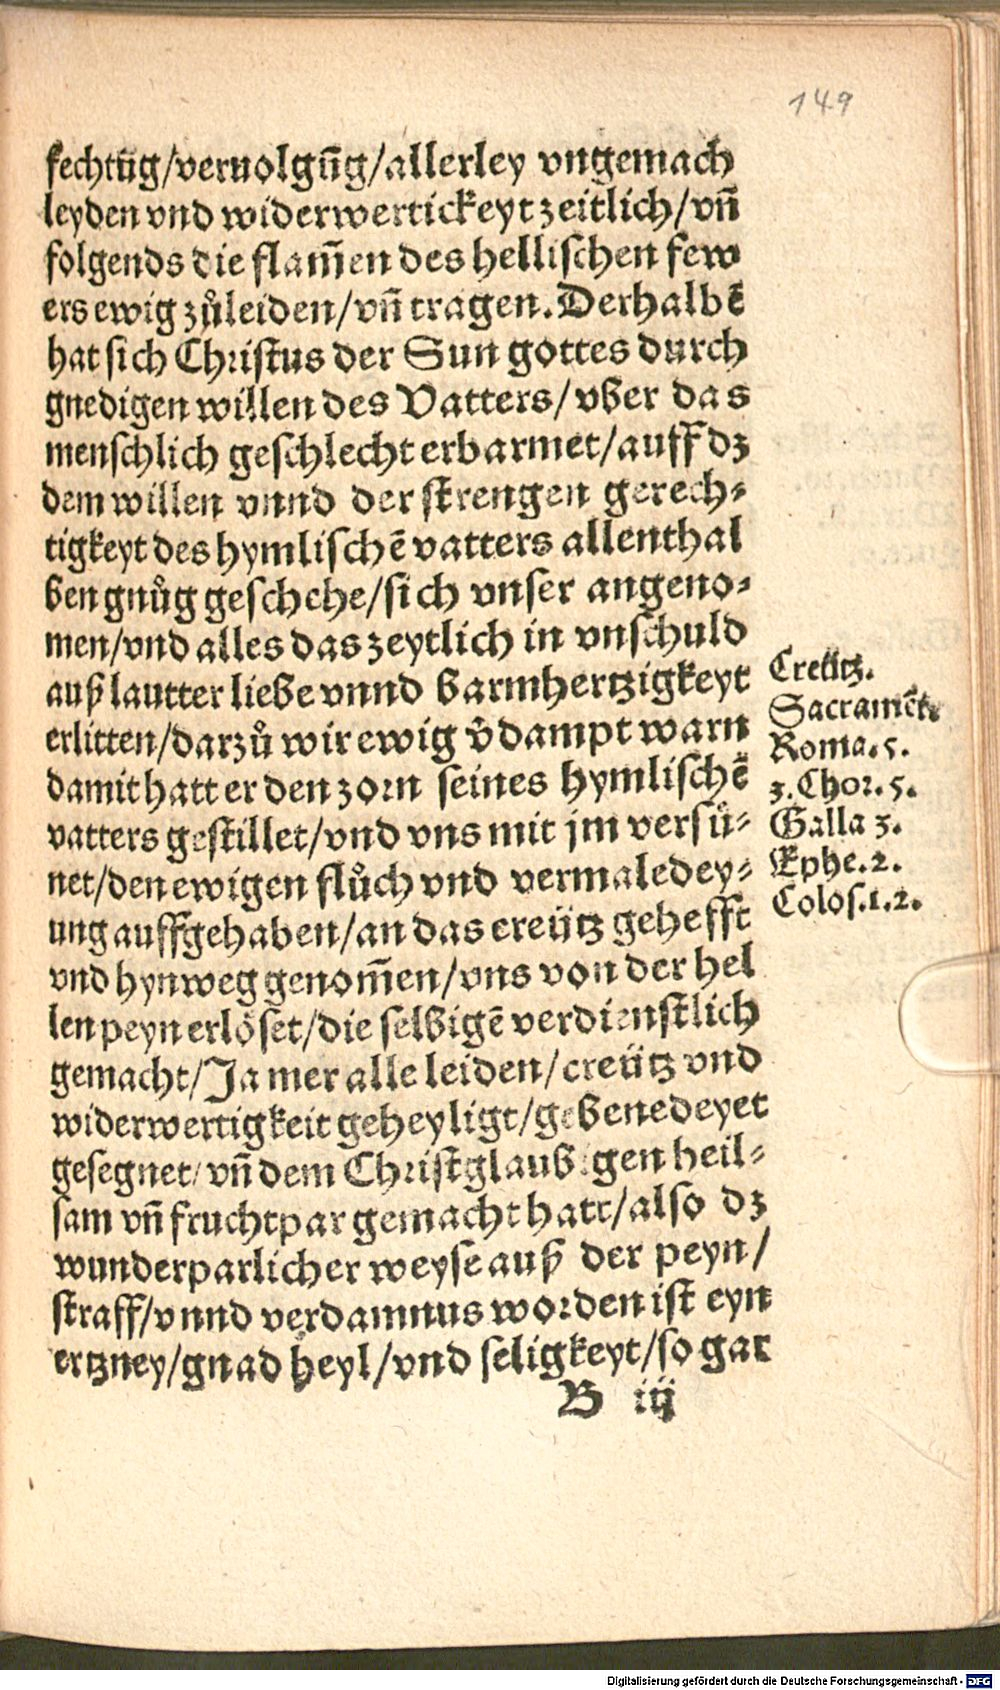 149
fechtūg/veruolgūg/allerley vngemach
leyden vnd widerwertickeyt zeitlich/vn̄
folgends die flam̄en des hellischen few
ers ewig zůleiden/vn̄ tragen. Derhalbē
hat sich Christus der Sun gottes durch
gnedigen willen des Vatters/vber das
menschlich geschlecht erbarmet/auff dz
dem willen vnnd der strengen gerech-
tigkeyt des hymlischē vatters allenthal
ben gnůg geschehe/sich vnser angeno-
men/vnd alles das zeytlich in vnschuld
auß lautter liebe vnnd barmhertzigkeyt
erlitten/darzů wir ewig v̂dampt warn
damit hatt er den zorn seines hymlischē
vatters gestillet/vnd vns mit jm versü-
net/den ewigen flůch vnd vermaledey-
ung auffgehaben/an das creütz gehefft
vnd hynweg genom̄en/vns von der hel
len peyn erlöset/die selbigē verdienstlich
gemacht/Ja mer alle leiden/creütz vnd
widerwertigkeit geheyligt/gebenedeyet
gesegnet/vn̄ dem Christglaubigen heil-
sam vn̄ fruchtpar gemacht hatt/also dz
wunderparlicher weyse auß der peyn/
straff/vnnd verdamnus worden ist eyn
ertzney/gnad heyl/vnd seligkeyt/so gar
B iij
Creütz.
Sacramēt.
Roma. 5.
z. Chor. 5.
Galla 3.
Ephe. 2.
Colos. 1. 2.
Digitalisierung gefördert durch die Deutsche Forschungsgemeinschaft - DFG